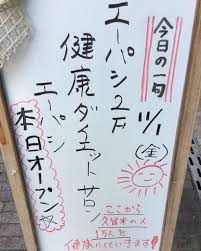 今日の一句
11/1
(金)
エーパシ2戸
健康ダイエットサロン
エーパシ
本日オープン☆
ここから
久留米の人
1万人を
健康にしていきます!